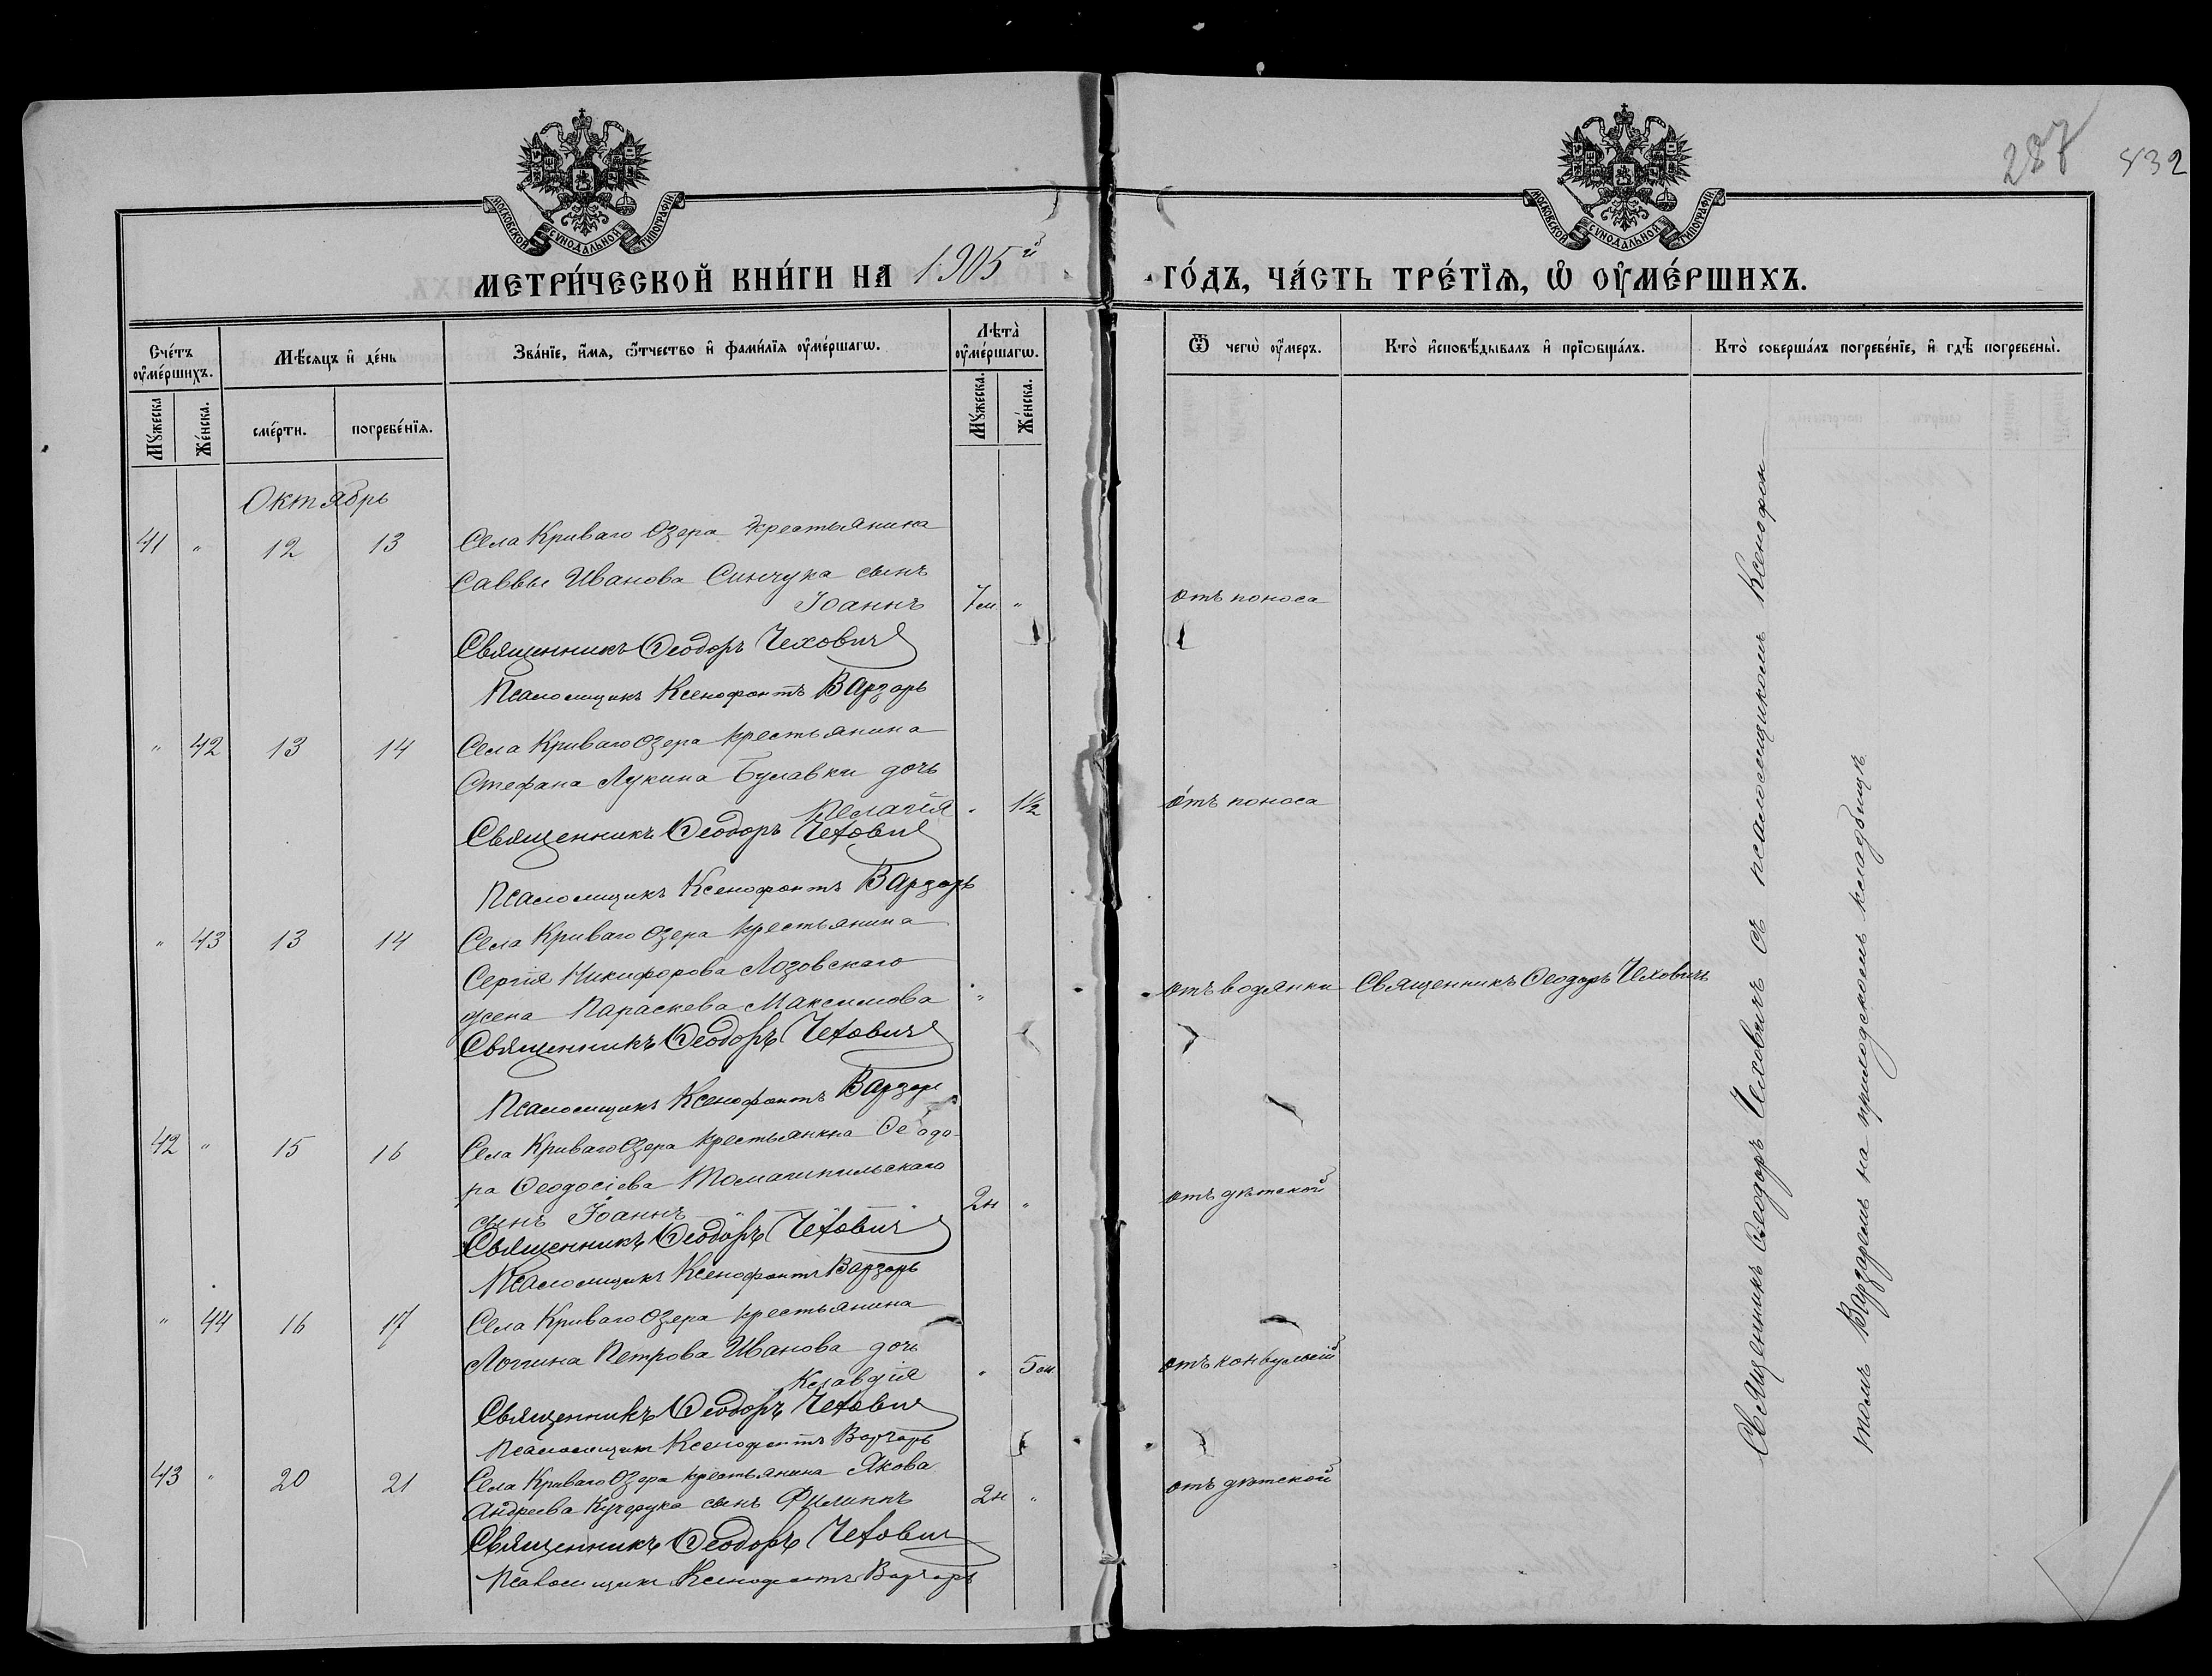 287
532
МОСКОВСКОЙ СѴНОДАЛЬНОЙ ТИПОГРАФІИ
МОСКОВСКОЙ СѴНОДАЛЬНОЙ ТИПОГРАФІИ
МЕТРИ́ЧЕСКОЙ КНИ́ГИ НА 1905й
ГО́ДЪ, ЧА́СТЬ ТРЕ́ТЇѦ, Ѡ҆ ОУ҆МЕ́РШИХЪ.
Сче́тъ оу҆ме́ршихъ.
Мѣ́сѧцъ и҆ де́нь
Зва́нїе, и҆́мѧ, ѻ҆́тчество и҆ фами́лїѧ оу҆ме́ршагѡ.
Лѣта̀ оу҆ме́ршагѡ.
Ѿ чегѡ̀ оу҆́меръ.
Кто̀ и҆сповѣ́дывалъ и҆ прїѡбща́лъ.
Кто̀ соверша́лъ погребе́нїе, и҆ гдѣ̀ погребены̀.
Мꙋ́жеска
Же́нска.
сме́рти.
погребе́нїѧ.
Мꙋ́жеска.
Же́нска.
Октябрь
41 " 12 13 Села Криваго Озера крестьянина
Саввы Иванова Синчука сынъ
Іоаннъ 7м " отъ поноса
Священникъ Ѳеодоръ Чеховичъ
Псаломщикъ Ксенофонтъ Варзарь
" 42 13 14 Села Криваго Озера крестьянина
Стефана Лукина Булавки дочь
Пелагія " 1½ отъ поноса
Священникъ Ѳеодоръ Чеховичъ
Псаломщикъ Ксенофонтъ Варзарь
" 43 13 14 Села Криваго Озера крестьянина
Сергія Никифорова Лозовскаго
жена Параскева Максимова " отъ водянки Священникъ Ѳеодоръ Чеховичъ
Священникъ Ѳеодоръ Чеховичъ
Псаломщикъ Ксенофонтъ Варзарь
42 " 15 16 Села Криваго Озера крестьянина Ѳеодо-
ра Ѳеодосіева
сынъ Іоаннъ 2н " отъ дѣтской
Священникъ Ѳеодоръ Чеховичъ
Псаломщикъ Ксенофонтъ Варзарь
" 44 16 17 Села Криваго Озера крестьянина
Логгина Петрова Иванова дочь
Клавдія " 5м отъ конвульсій
Священникъ Ѳеодоръ Чеховичъ
Псаломщикъ Ксенофонтъ Варзарь
43 " 20 21 Села Криваго Озера крестьянина Якова
Андреева Кучерука сынъ Филиппъ 2н " отъ дѣтской
Священникъ Ѳеодоръ Чеховичъ
Псаломщикъ Ксенофонтъ Варзарь
Священникъ Ѳеодоръ Чеховичъ съ псаломщикомъ Ксенофон
томъ Варзаремъ на приходскомъ кладбищѣ